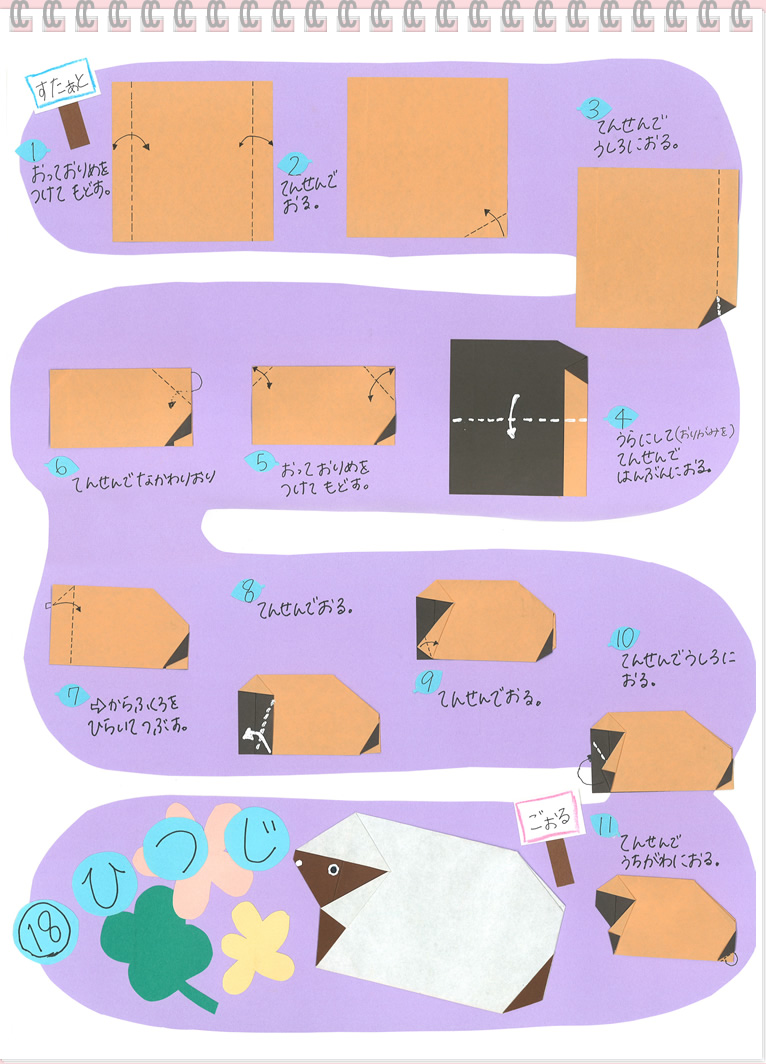 すたぁと
1
おっておりめを
つけて もどす。
2
てんせんで
おる。
3
てんせんで
うしろにおる。
4
うらにして(おりがみを)
てんせんで
はんぶんにおる。
5
おっておりめを
つけて もどす。
6
てんせんでなかわりおり
7
⇨からふくろを
ひらいてつぶす。
8
てんせんでおる。
9
てんせんでおる。
10
てんせんでうしろに
おる。
11
てんせんで
うちがわにおる。
ごおる
18 ひつじ